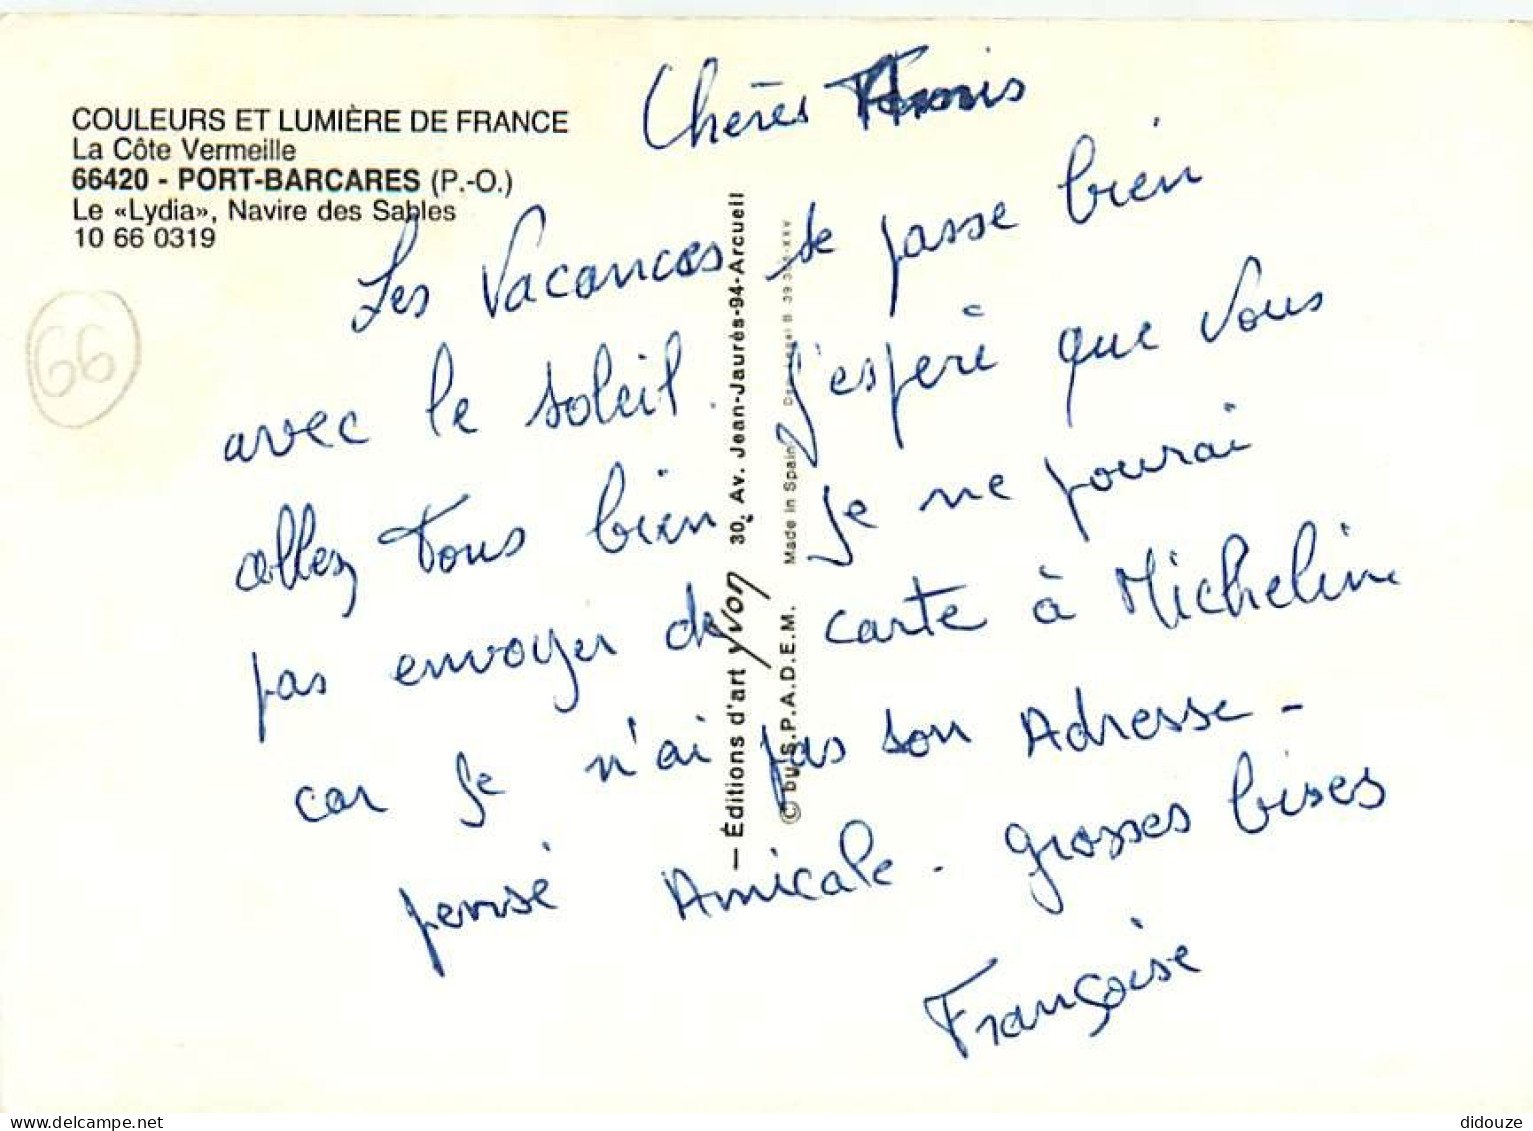 COULEURS ET LUMIÈRE DE FRANCE
La Côte Vermeille
66420 - PORT-BARCARES (P.-O.)
Le «Lydia», Navire des Sables
10 66 0319
66
Chères Amis
Les Vacances se passe bien
avec le soleil. J'espère que Vous
allez Tous bien, je ne pourai
pas envoyer de carte à Micheline
car je n'ai pas son Adresse -
pensé Amicale - grosses bises
Françoise
— Éditions d'art yvon 30, Av. Jean-Jaurès-94-Arcueil
© by S.P.A.D.E.M. Made in Spain
didouze